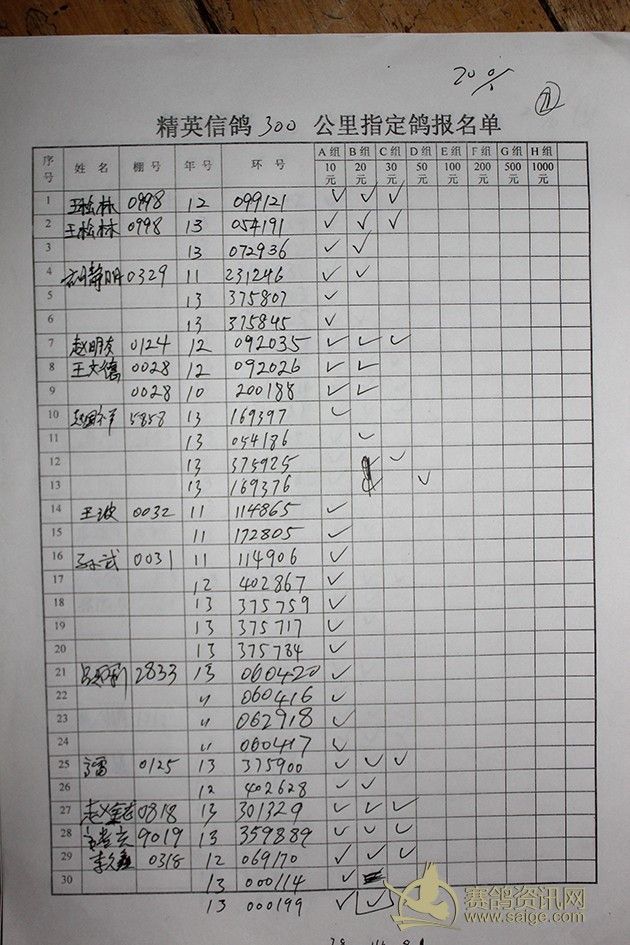 精英信鸽 300 公里指定鸽报名单
序号 姓名 棚号 年号 环号 A组10元 B组20元 C组30元 D组50元 E组100元 F组200元 G组500元 H组1000元
1 王松林 0998 12 099121 ✓ ✓ ✓
2 王松林 0998 13 054191 ✓ ✓ ✓
3 13 072936 ✓ ✓
4 胡静明 0329 11 231246 ✓ ✓
5 13 375807 ✓
6 13 375845 ✓
7 赵明友 0124 12 092035 ✓ ✓ ✓
8 王文德 0028 12 092026 ✓ ✓
9 0028 10 200188 ✓ ✓
10 5858 13 169397 ✓
11 13 054186 ✓
12 13 375925 ✓
13 13 169376 ✓
14 王波 0032 11 114865 ✓
15 11 172805 ✓
16 0031 11 114906 ✓
17 12 402867 ✓
18 13 375759 ✓
19 13 375717 ✓
20 13 375784 ✓
21 2833 13 060420 ✓
22 〃 060416 ✓
23 〃 062918 ✓
24 〃 060417 ✓
25 0125 13 375900 ✓ ✓ ✓
26 12 402628 ✓ ✓
27 0818 13 301329 ✓ ✓ ✓
28 9019 13 359889 ✓ ✓ ✓
29 0318 12 069170 ✓ ✓ ✓
30 13 000114 ✓
13 000199 ✓ ✓
赛鸽资讯网
www.saige.com